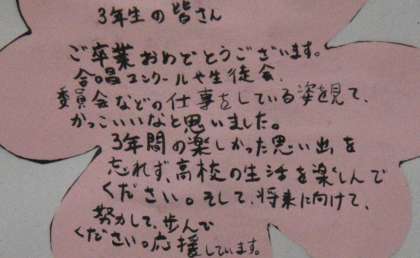 3年生の皆さん
ご卒業おめでとうございます。
合唱コンクールや生徒会、
委員会などの仕事をしている姿を見て、
かっこいいなと思いました。
3年間の楽しかった思い出を
忘れず、高校の生活を楽しんで
ください。そして、将来に向けて、
努力して、歩んで
ください。応援しています。